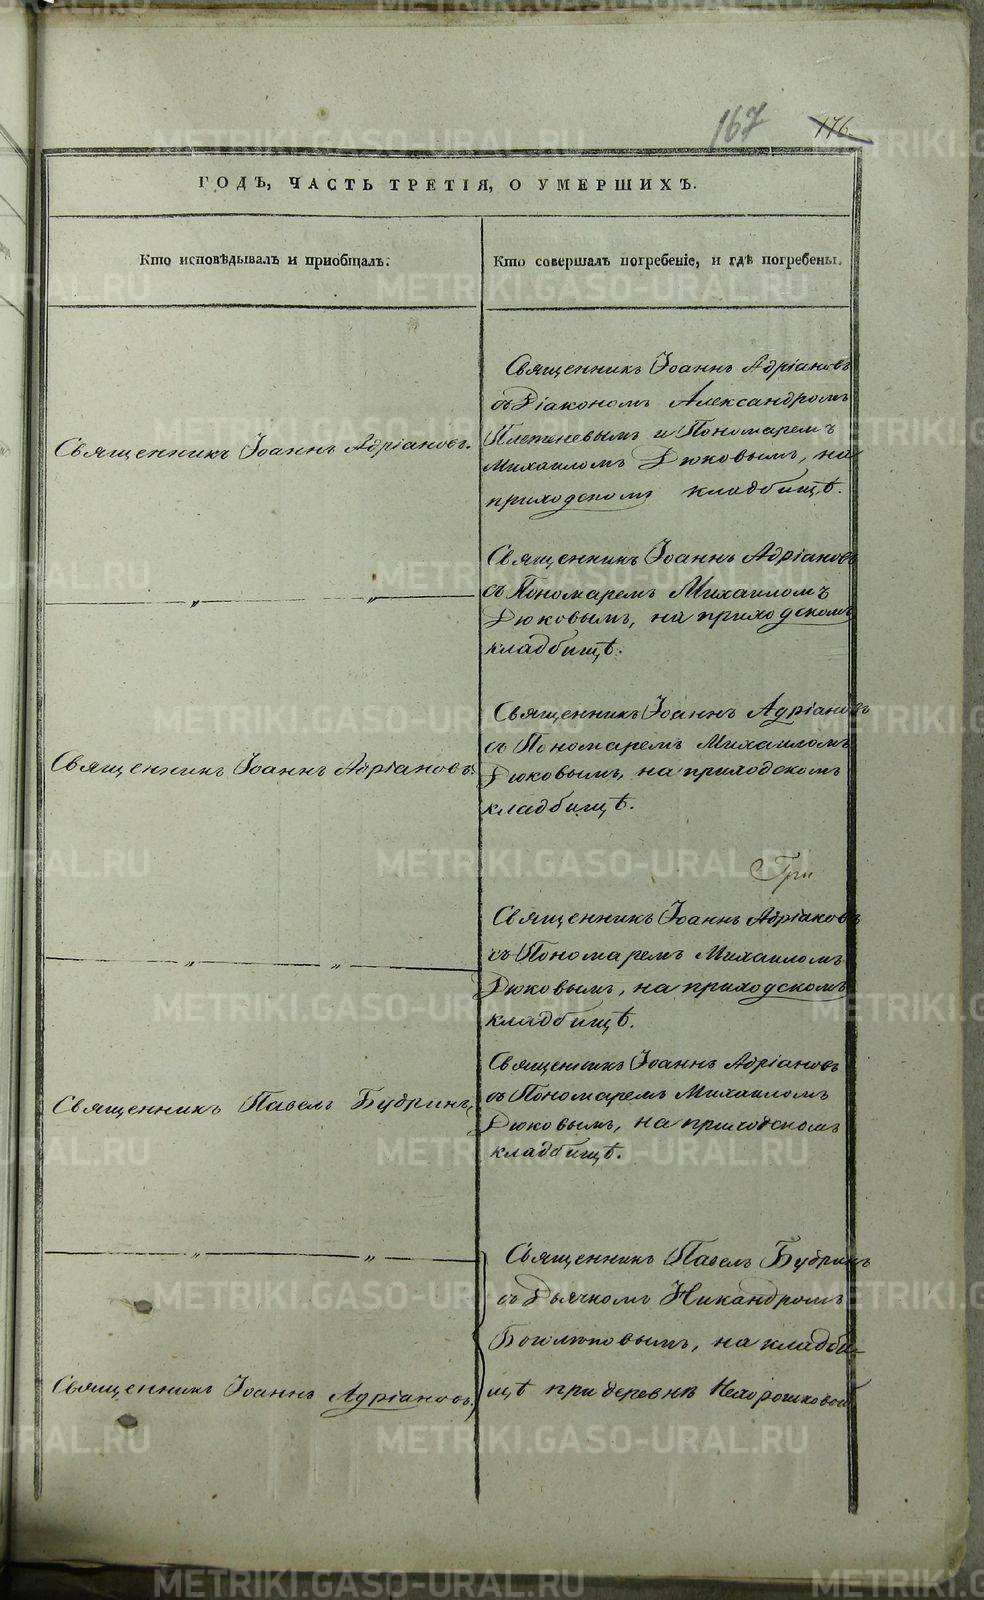 167 176
ГОДЪ, ЧАСТЬ ТРЕТІЯ, О УМЕРШИХЪ.
Кто исповѣдывалъ и пріобщалъ.
Кто совершалъ погребеніе, и гдѣ погребены.
Священникъ Іоаннъ Адріановъ.
Священникъ Іоаннъ Адріановъ
съ Діакономъ Александромъ
Плетеневымъ и Пономаремъ
Михаиломъ Дюковымъ, на
приходскомъ кладбищѣ.
— „ — „ —
Священникъ Іоаннъ Адріановъ
съ Пономаремъ Михаиломъ
Дюковымъ, на приходскомъ
кладбищѣ.
Священникъ Іоаннъ Адріановъ.
Священникъ Іоаннъ Адріановъ
съ Пономаремъ Михаиломъ
Дюковымъ, на приходскомъ
кладбищѣ.
Гри
— „ — „ —
Священникъ Іоаннъ Адріановъ
съ Пономаремъ Михаиломъ
Дюковымъ, на приходскомъ
кладбищѣ.
Священникъ Павелъ Будринъ,
Священникъ Іоаннъ Адріановъ
съ Пономаремъ Михаиломъ
Дюковымъ, на приходскомъ
кладбищѣ.
— „ — „ —
Священникъ Іоаннъ Адріановъ.
Священникъ Павелъ Будринъ
съ Дьячкомъ Никандромъ
Боголюповымъ, на кладби-
щѣ при деревнѣ Нехорошковой
METRIKI.GASO-URAL.RU